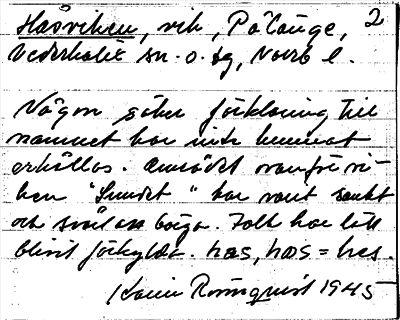 Hasviken, vik, Pålänge, 2
Nederkalix sn. o. tg, Norrb l.
Någon säker förklaring till
namnet har inte kunnat
erhållas. Området ovanför vi-
ken "Sundet" har varit sankt
och svårt att bärga. Folk har lätt
blivit förkylda. hæs, hæs = hes.
Karin Rönnquist 1945